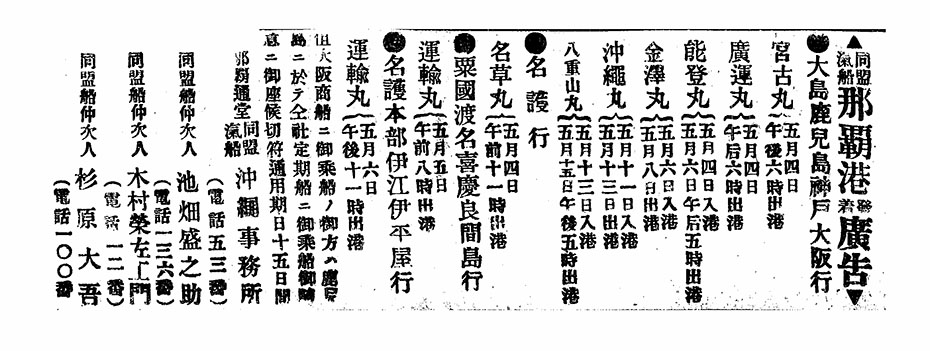 ▲同盟汽船那覇港發着廣告▼
●大島鹿兒島神戸大阪行
宮古丸{五月四日午後六時出港
廣運丸{五月四日午后六時出港
能登丸{五月四日入港五月六日午后五時出港
金澤丸{五月六日入港五月八日出港
沖繩丸{五月十一日入港五月十三日出港
八重山丸{五月十三日入港五月十五日午後五時出港
●名護行
名草丸{五月四日午前十一時出港
●粟國渡名喜慶良間島行
運輸丸{五月五日午前八時出港
●名護本部伊江伊平屋行
運輸丸{五月六日午後十一時出港
但大阪商船ニ御乘船ノ御方ハ鹿兒
島ニ於テ仝社定期船ニ御乘船御隨
意ニ御座候切符通用期日十五日間
那覇通堂同盟汽船沖繩事務所
(電話五三番)
同盟船仲次人池畑盛之助
(電話一三六番)
同盟船仲次人木村榮左工門
(電話一二番)
同盟船仲次人杉原大吾
(電話一〇〇番)